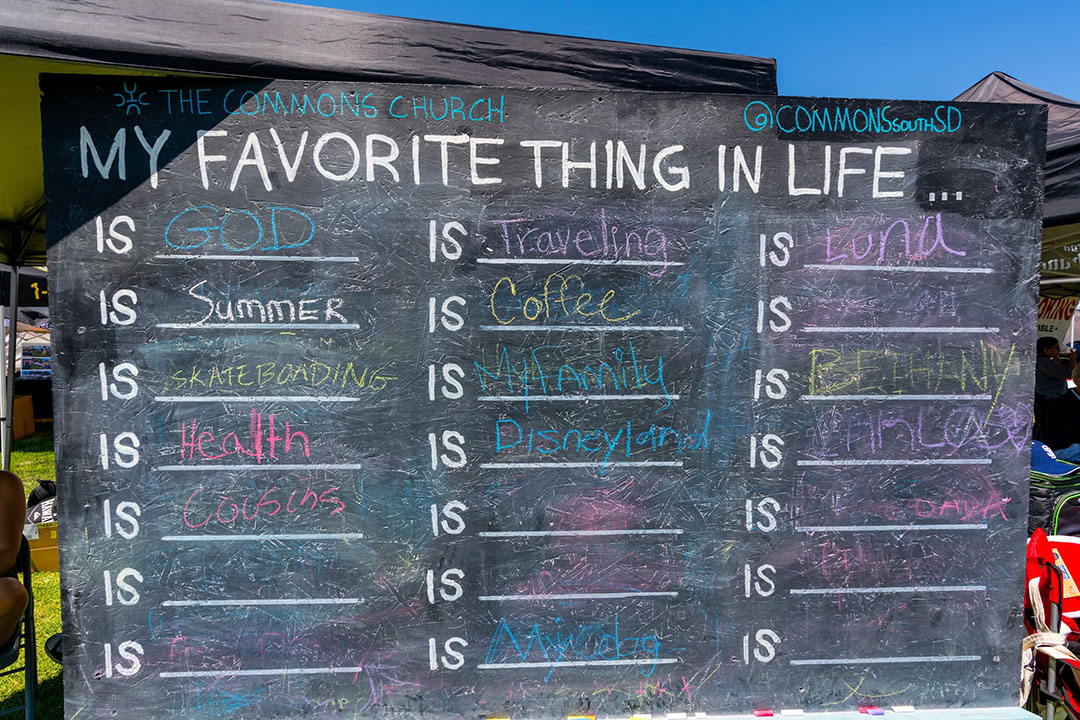 THE COMMONS CHURCH
@COMMONSSOUTHSD
MY FAVORITE THING IN LIFE ...
IS GOD
IS SUMMER
IS SKATEBOADING
IS Health
IS Cousins
IS
IS
IS Traveling
IS Coffee
IS My Family
IS Disneyland
IS
IS
IS My dog
IS Lund
IS
IS BETHANY
IS
IS
IS
IS